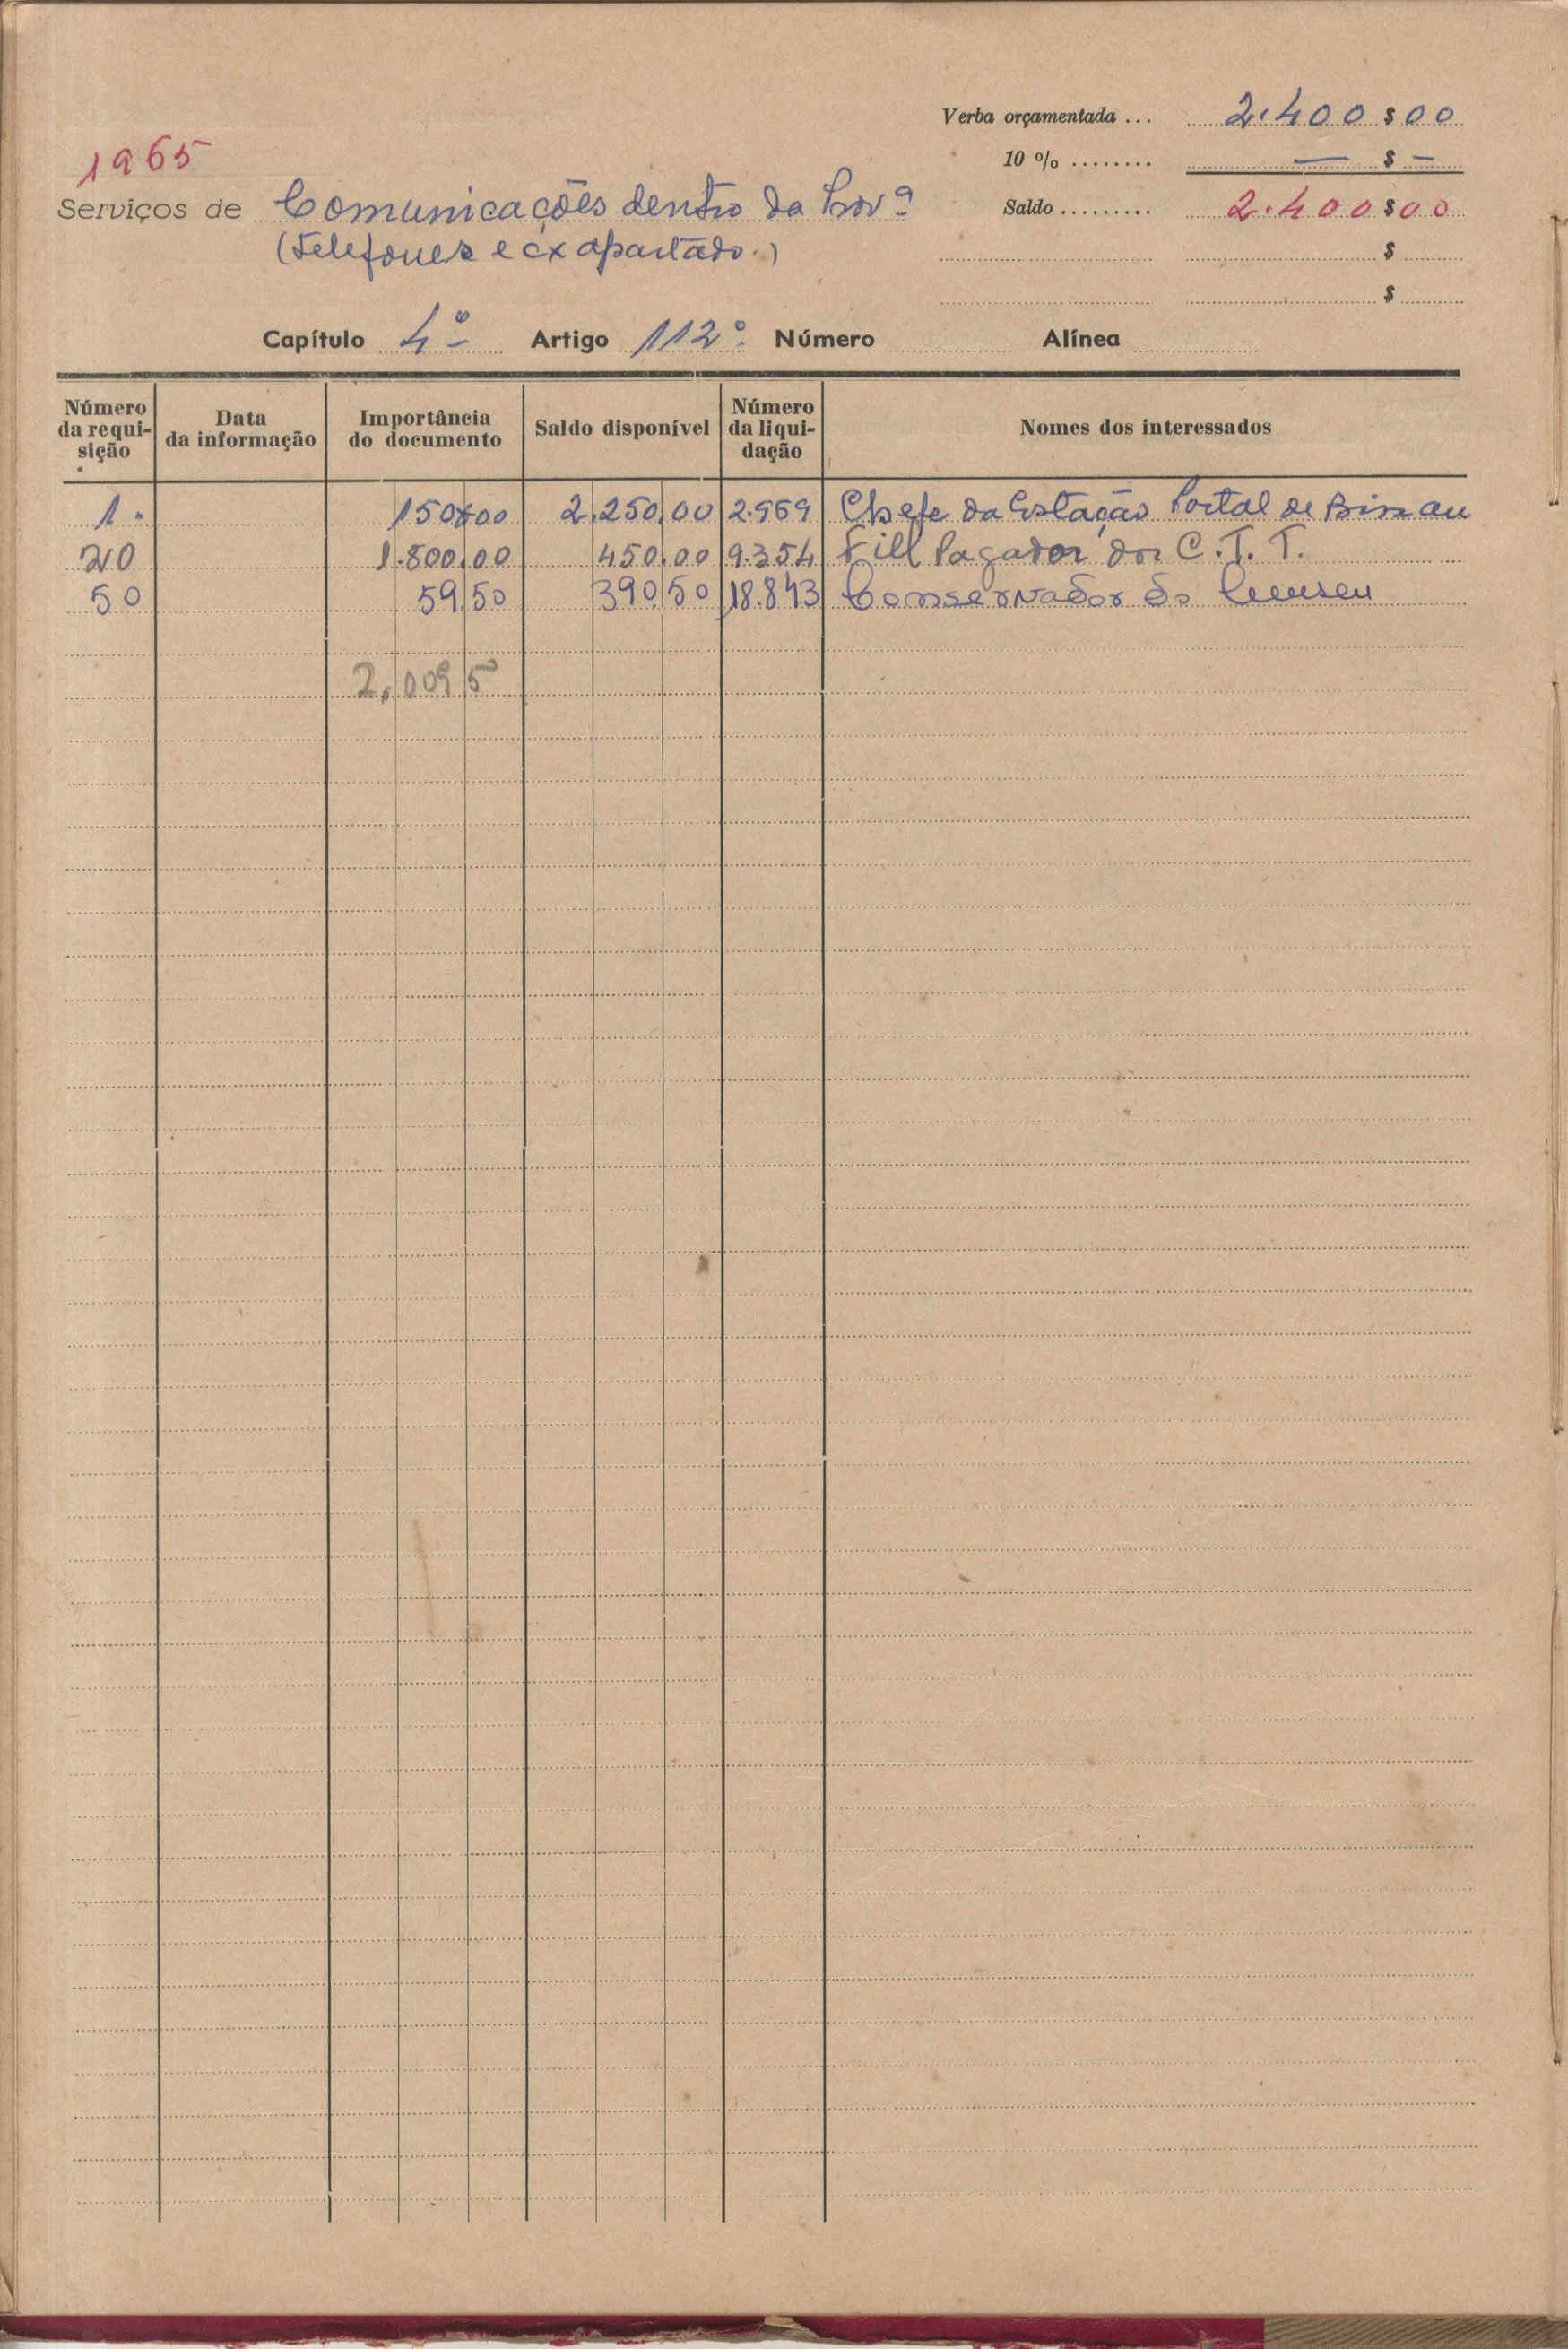 1965
Verba orçamentada ... 2.400$00
10 % ........ — $ —
Serviços de Comunicações dentro da Prov.ª
Saldo ......... 2.400$00
(Telefones e cx apartado.)
$
$
Capítulo 4º Artigo 112º Número Alínea
Número da requi-sição Data da informação Importância do documento Saldo disponível Número da liqui-dação Nomes dos interessados
1. 150$00 2.250,00 2.969 Chefe da Estação Postal de Bissau
20 1.800,00 450,00 9.354 Fiel Pagador dos C.T.T.
50 59,50 390,50 18.843 Conservador do Museu
2,009 5